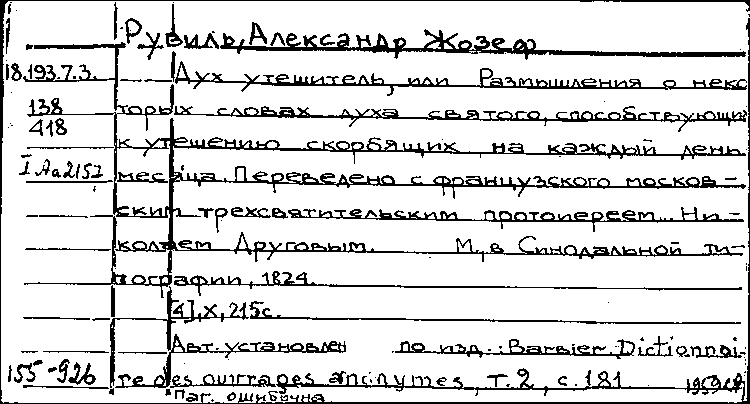 Рувиль, Александр Жозеф
18.193.7.3. Дух утешитель, или Размышления о неко
138 торых словах духа святого, способствующи
418
к утешению скорбящих, на каждый день
I Aa2157 месяца. Переведено с французского москов-
ским трехсвятительским протоиереем Ни-
колаем Друговым. М., в Синодальной ти-
пографии, 1824.
[4], X, 215с.
Авт. установлен по изд.: Barbier. Dictionnai-
155-926 re des ouvrages anonymes, т.2, с.181.
Паг. ошибочна